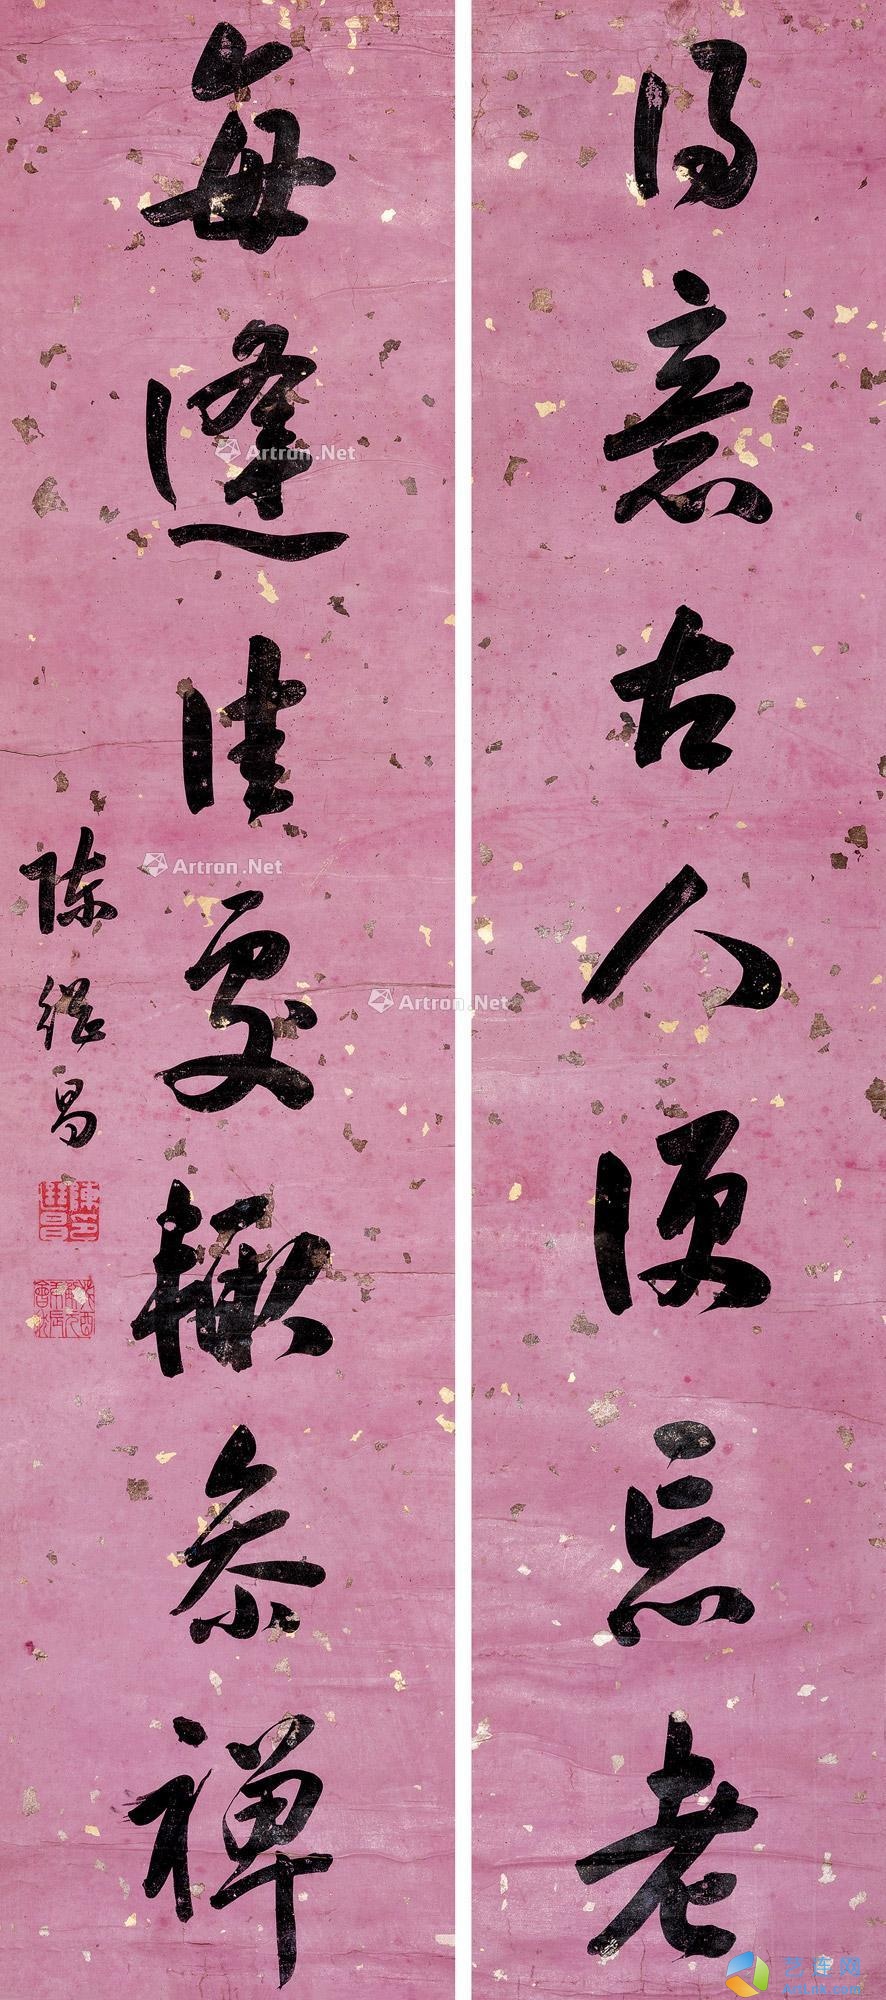 得意古人便忘老
每逢佳處輒參禪
陳繼昌
Artron.Net
Artron.Net
Artron.Net